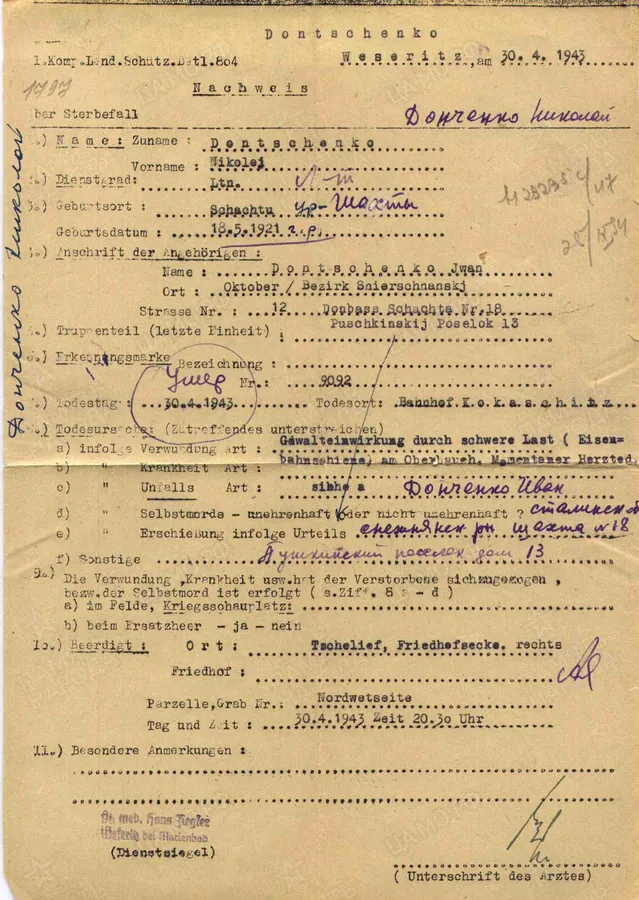 Dontschenko
1.Komp.Lend.Schütz.Batl.804
Weseritz, am 30.4.1943
1797
Nachweis
ber Sterbefall
Донченко Николай
Донченко Николай
1.) Name: Zuname : Dontschenko
Vorname : Nikolej
2.) Dienstgrad: Ltn. Л-т
3.) Geburtsort : Schachtu ур-Шахты
Geburtsdatum : 18.5.1921 г.р.
Anschrift der Angehörigen :
Name : Dontschenko Jwan
Ort : Oktober / Bezirk Snierschnanskj
Strasse Nr. : 12 Donbass Schachta Nr.18
Puschkinskij Poselok 13
5.) Truppenteil (letzte Einheit) :
6.) Erkennungsmarke Bezeichnung :
Умер
Nr.: 9092
7.) Todestag: 30.4.1943 Todesort: Bahnhof Kokaschitz
8.) Todesursache: (Zutreffendes unterstreichen)
a) infolge Verwundung Art : Gewalteinwirkung durch schwere Last ( Eisen=
bahnschiene) am Oberbauch, Momentaner Herztod.
b) " Krankheit Art :
c) " Unfalls Art : siehe a
Донченко Иван
d) " Selbstmords - unehrenhaft oder nicht unehrenhaft ?
e) " Erschießung infolge Urteils
снежнянск рн шахта №18
f) Sonstige
Пушкинский поселок дом 13
9.) Die Verwundung ,Krankheit usw.hat der Verstorbene sichzugezogen ,
bezw.der Selbstmord ist erfolgt ( s.Ziff. 8 a - d )
a) im Felde, Kriegsschauplatz:
b) beim Ersatzheer - ja - nein
10.) Beerdigt : Ort : Tschelief, Friedhofsecke, rechts
Friedhof :
Parzelle,Grab Nr.: Nordwetseite
Tag und Zeit : 30.4.1943 Zeit 20.30 Uhr
11.) Besondere Anmerkungen :
Dr. med. Hans Ziegler
Weseritz bei Marienbad
(Dienstsiegel)
( Unterschrift des Arztes)